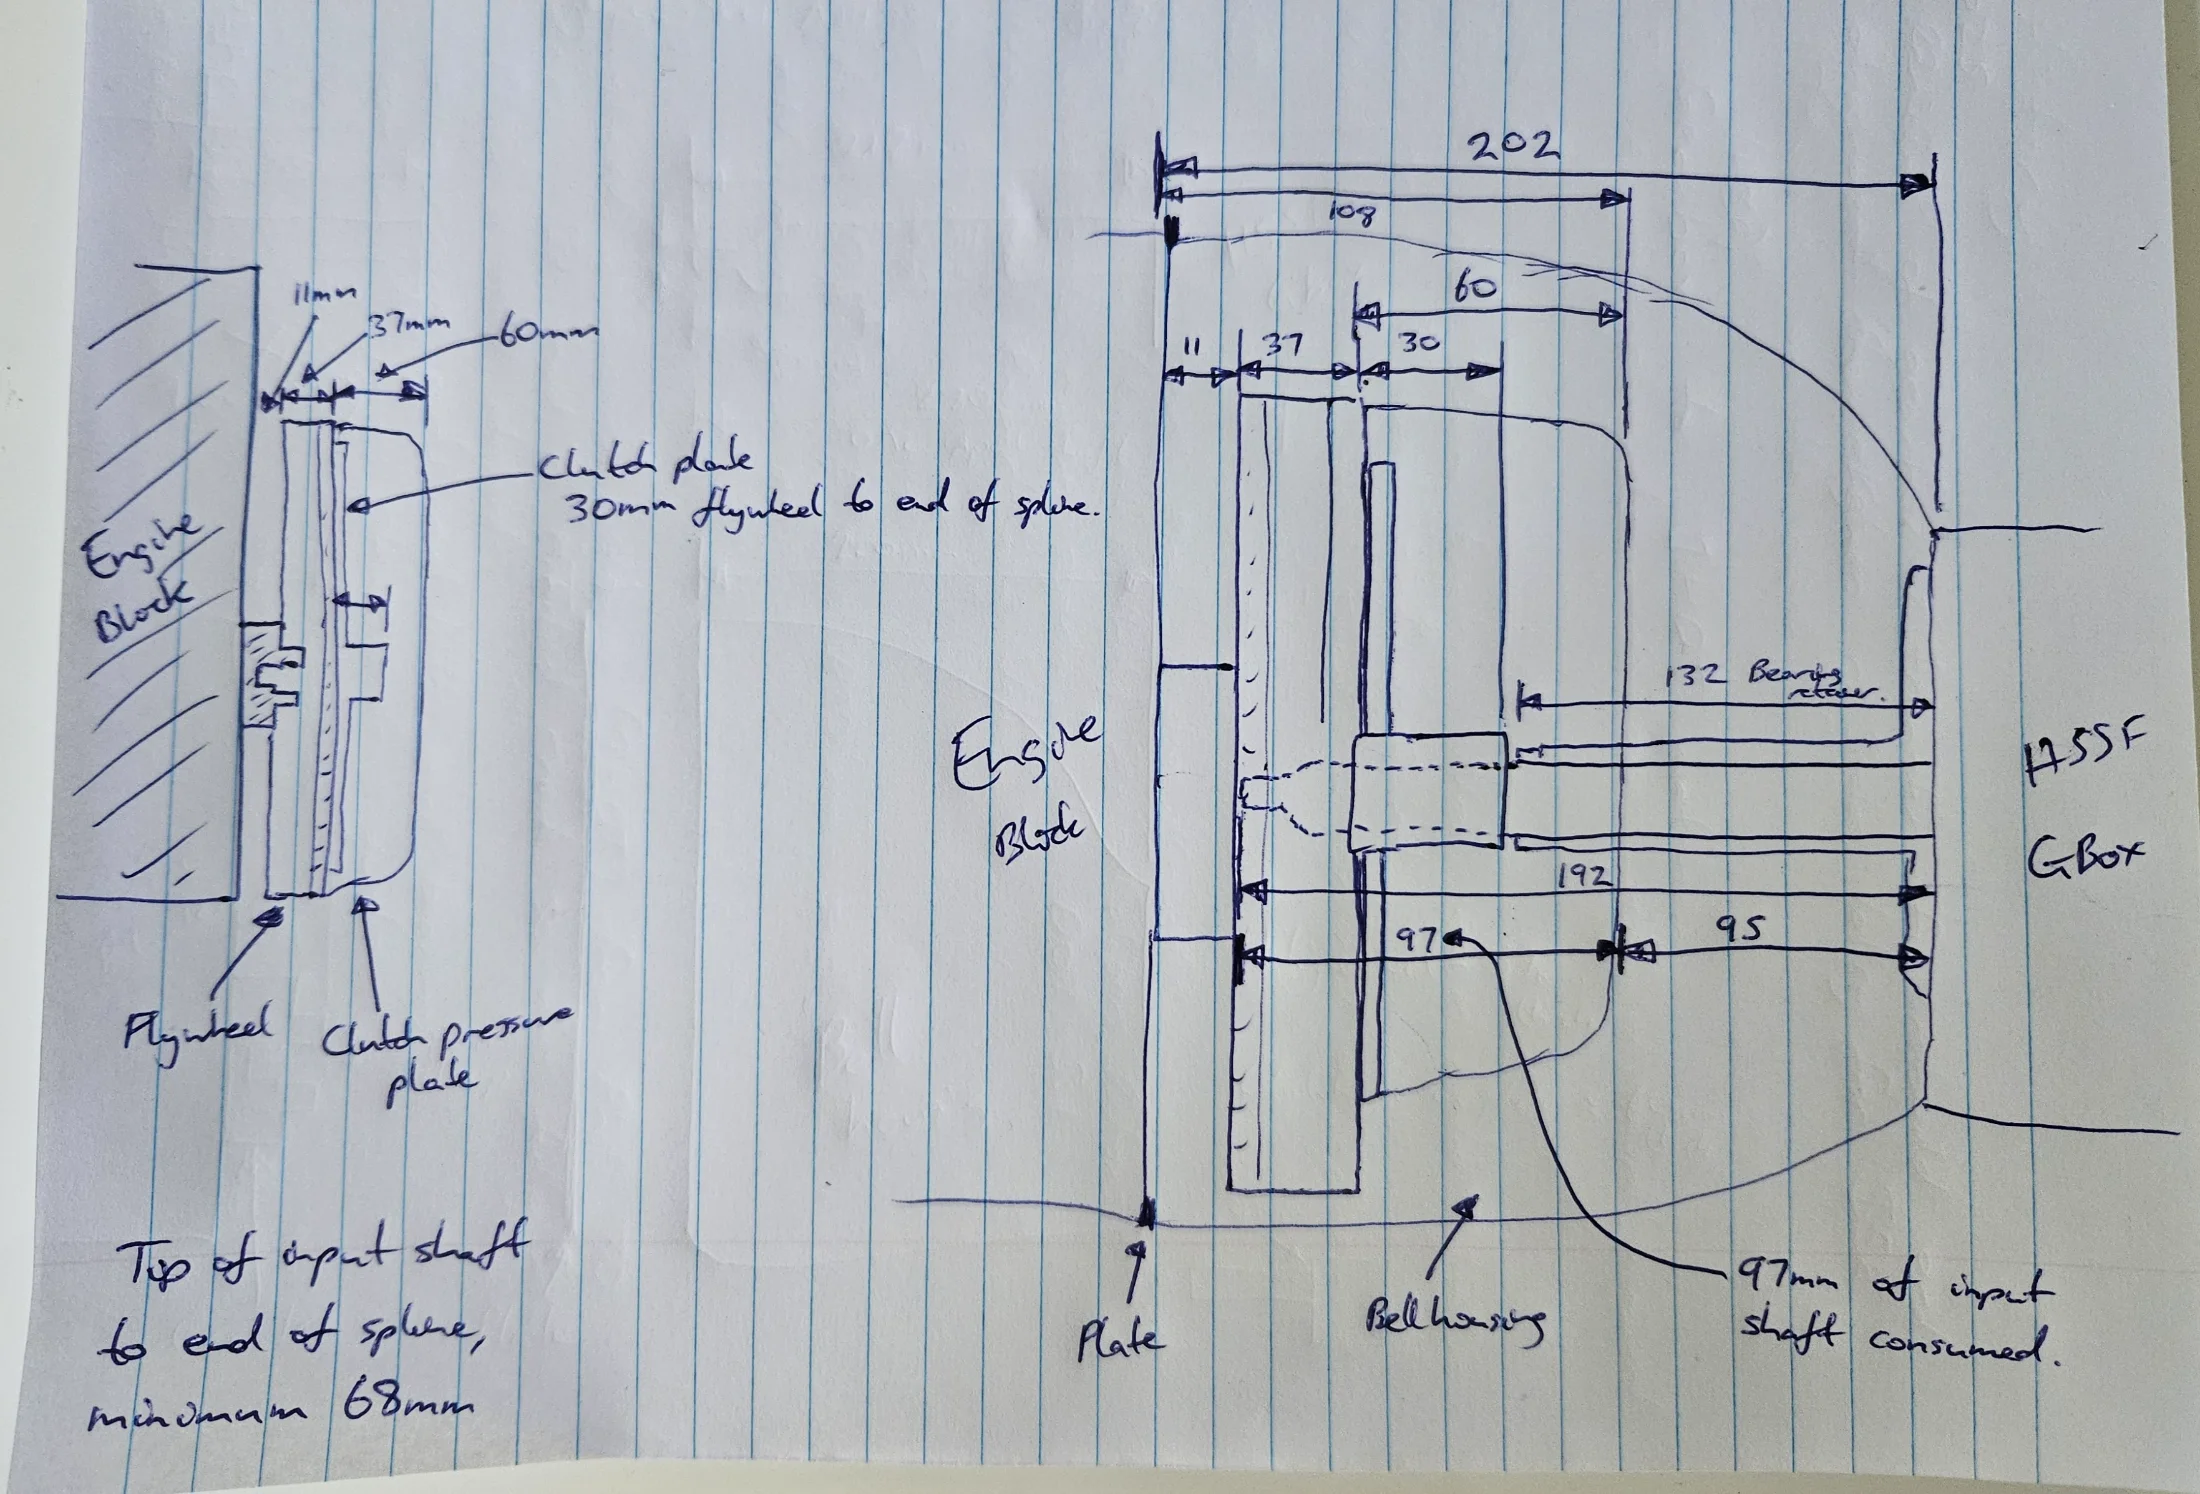 11mm
37mm
60mm
Clutch plate
30mm flywheel to end of spline.
Engine
Block
Flywheel
Clutch pressure
plate
Tip of input shaft
to end of spline,
minimum 68mm
202
108
60
11
37
30
132 Bearing
retainer.
Engine
Block
GBox
192
97
95
Plate
Bellhousing
97mm of input
shaft consumed.